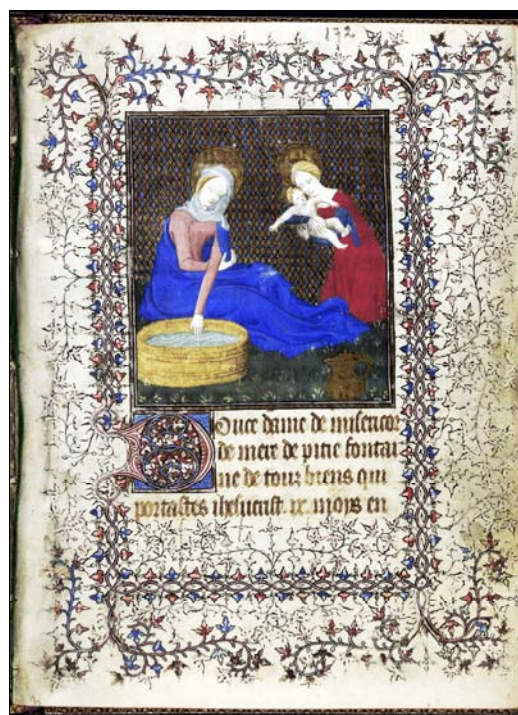 172
Douce dame de misericor
de mere de pitie fontai
ne de tous biens qui
portastes ihesucrist. ix. mois en